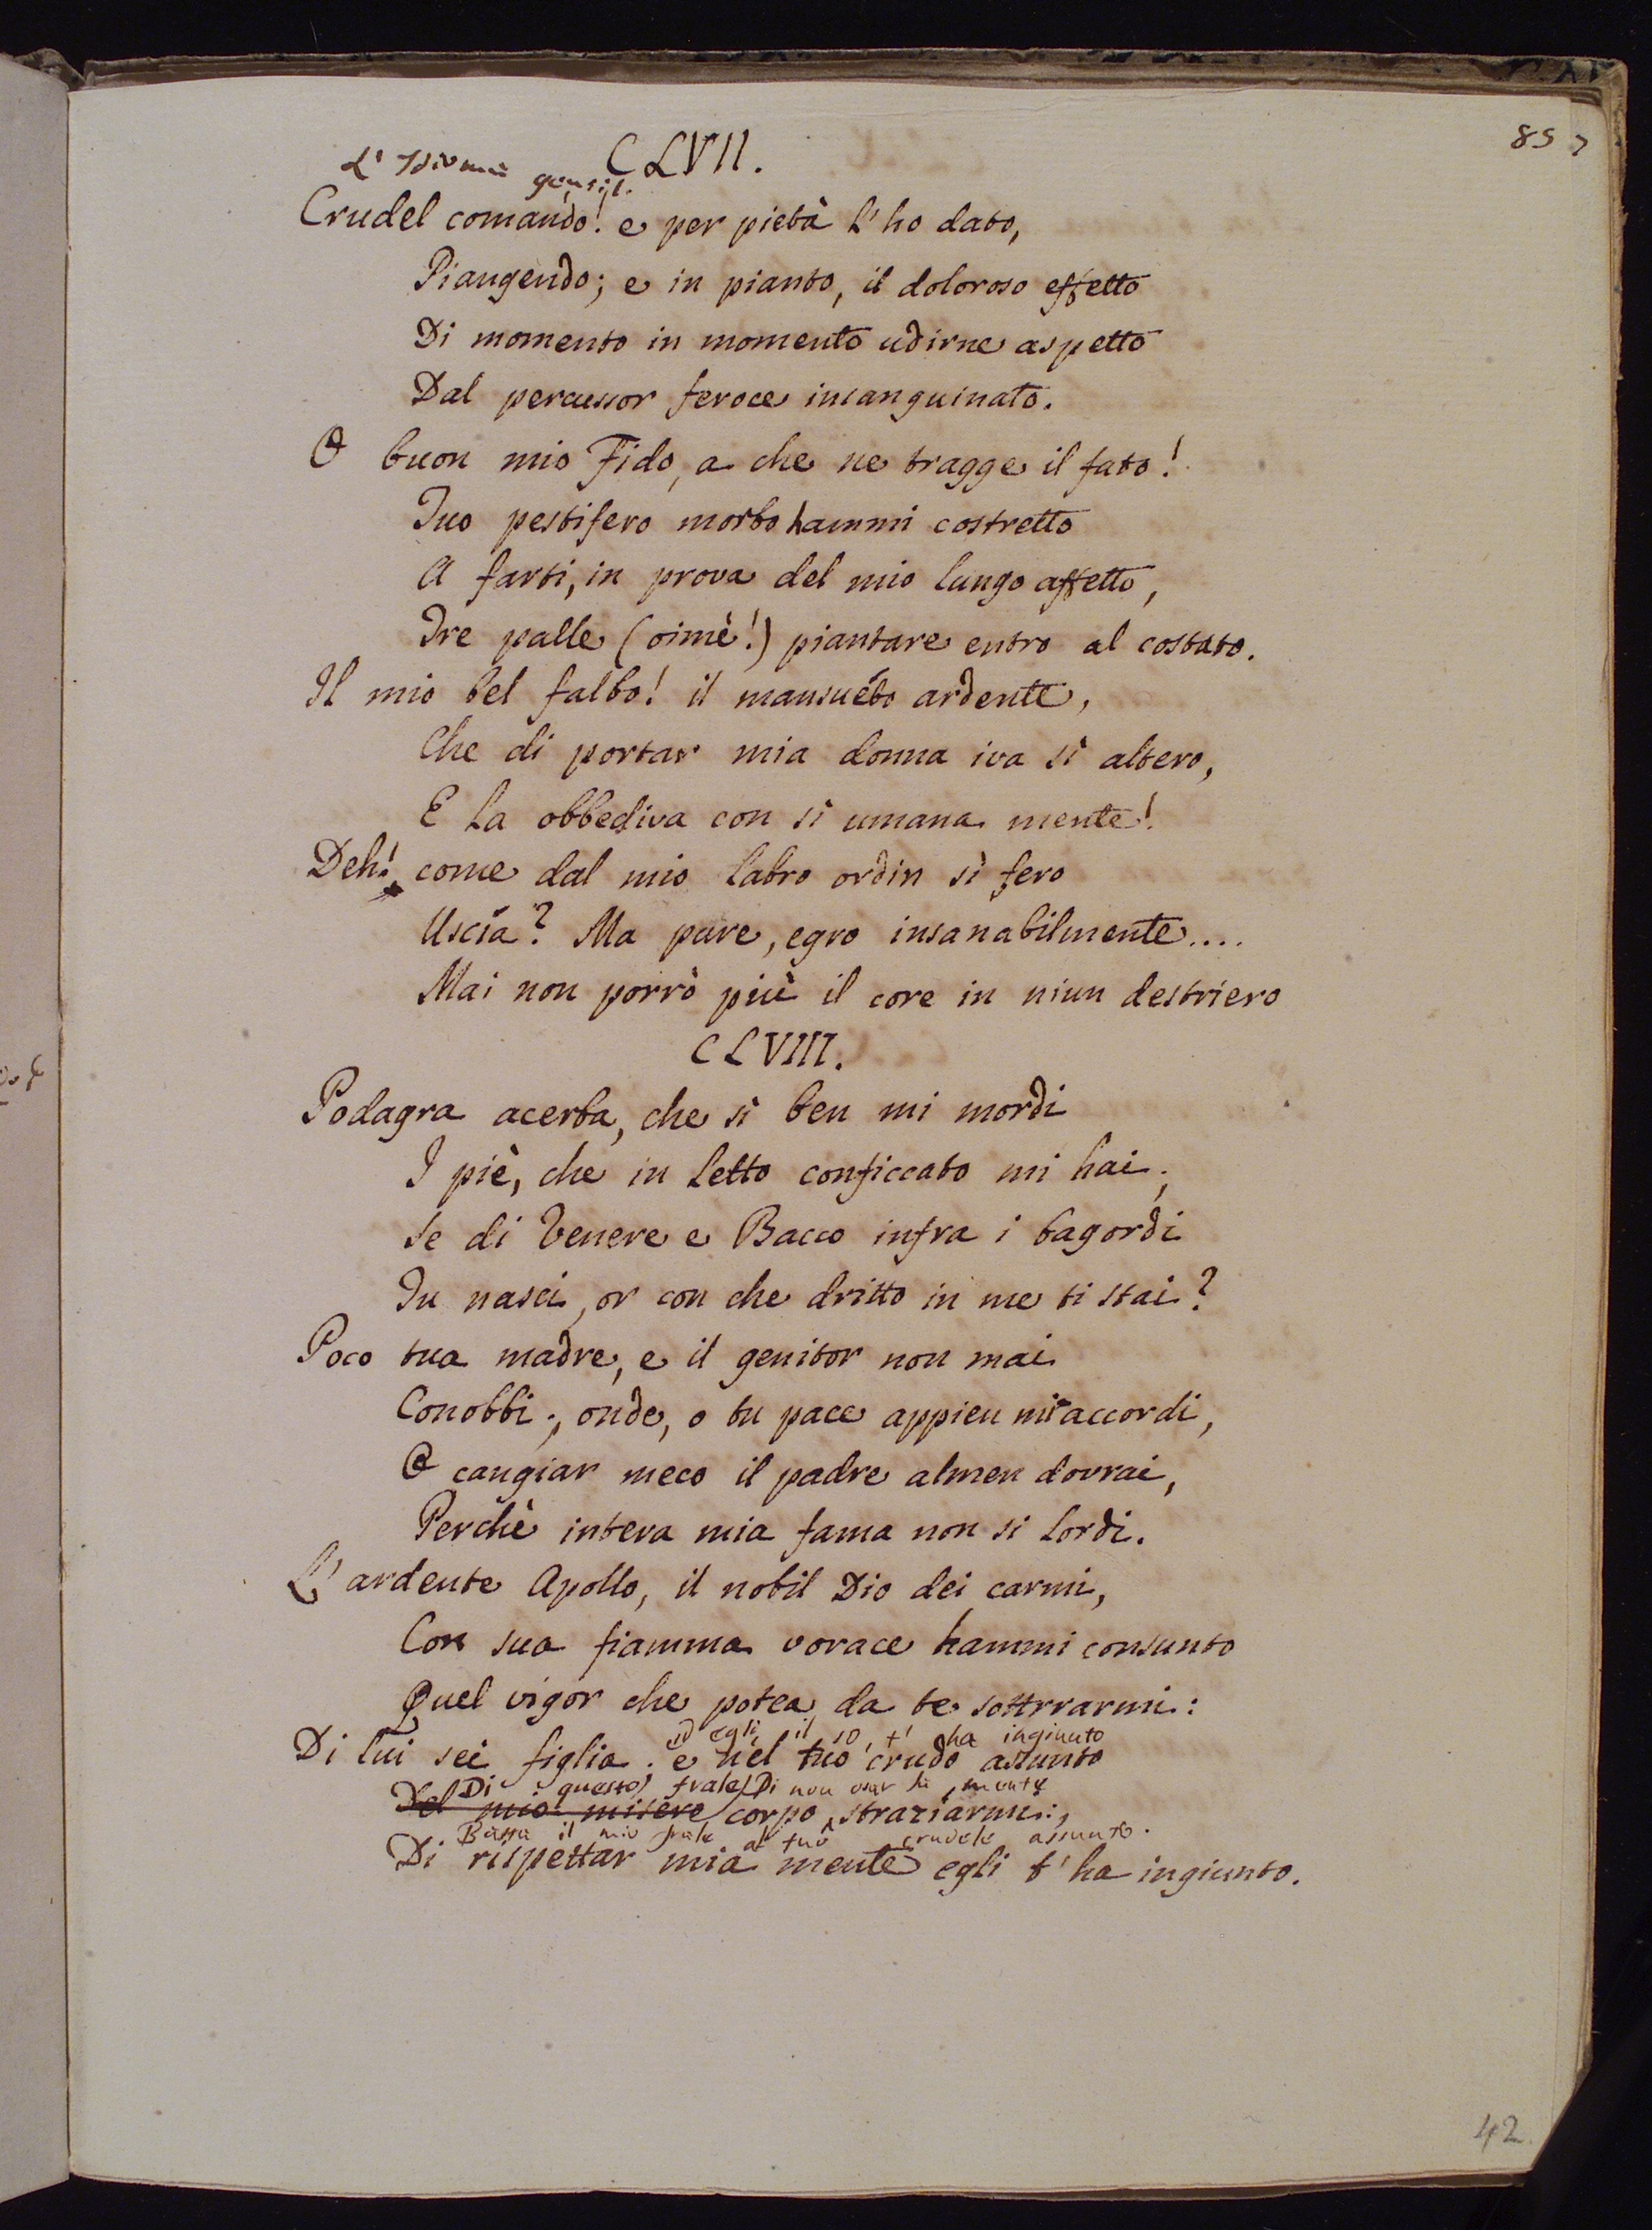 85
CLVII.
Crudel comando! e per pietà l'ho dato,
Piangendo; e in pianto, il doloroso effetto
Di momento in momento udirne aspetto
Dal percussor feroce insanguinato.
O buon mio Fido, a che ne tragge il fato!
Tuo pestifero morbo hammi costretto
A farti, in prova del mio lungo affetto,
Tre palle (oimè!) piantare entro al costato.
Il mio bel falbo! il mansuéto ardente,
Che di portar mia donna iva sì altero,
E la obbediva con sì umana mente!
Deh! come dal mio labro ordin sì fero
Uscía? Ma pure, egro insanabilmente....
Mai non porrò più il core in niun destriero
CLVIII.
Podagra acerba, che sì ben mi mordi
I piè, che in letto conficcato mi hai;
Se di Venere e Bacco infra i bagordi
Tu nasci, or con che dritto in me ti stai?
Poco tua madre, e il genitor non mai
Conobbi; onde, o tu pace appien mi accordi,
O cangiar meco il padre almen dovrai,
Perchè intera mia fama non si lordi.
L'ardente Apollo, il nobil Dio dei carmi,
Con sua fiamma vorace hammi consunto
Quel vigor che potea da te sottrrarmi:
ed egli, il so, t' ha ingiunto
Di lui sei figlia: e nel tuo crudo assunto
Di questo frale Di non osar la mente
Del mio misero corpo straziarmi:,
Basta il mio frale al tuo crudele assunto.
Di rispettar mia mente egli t'ha ingiunto.
42